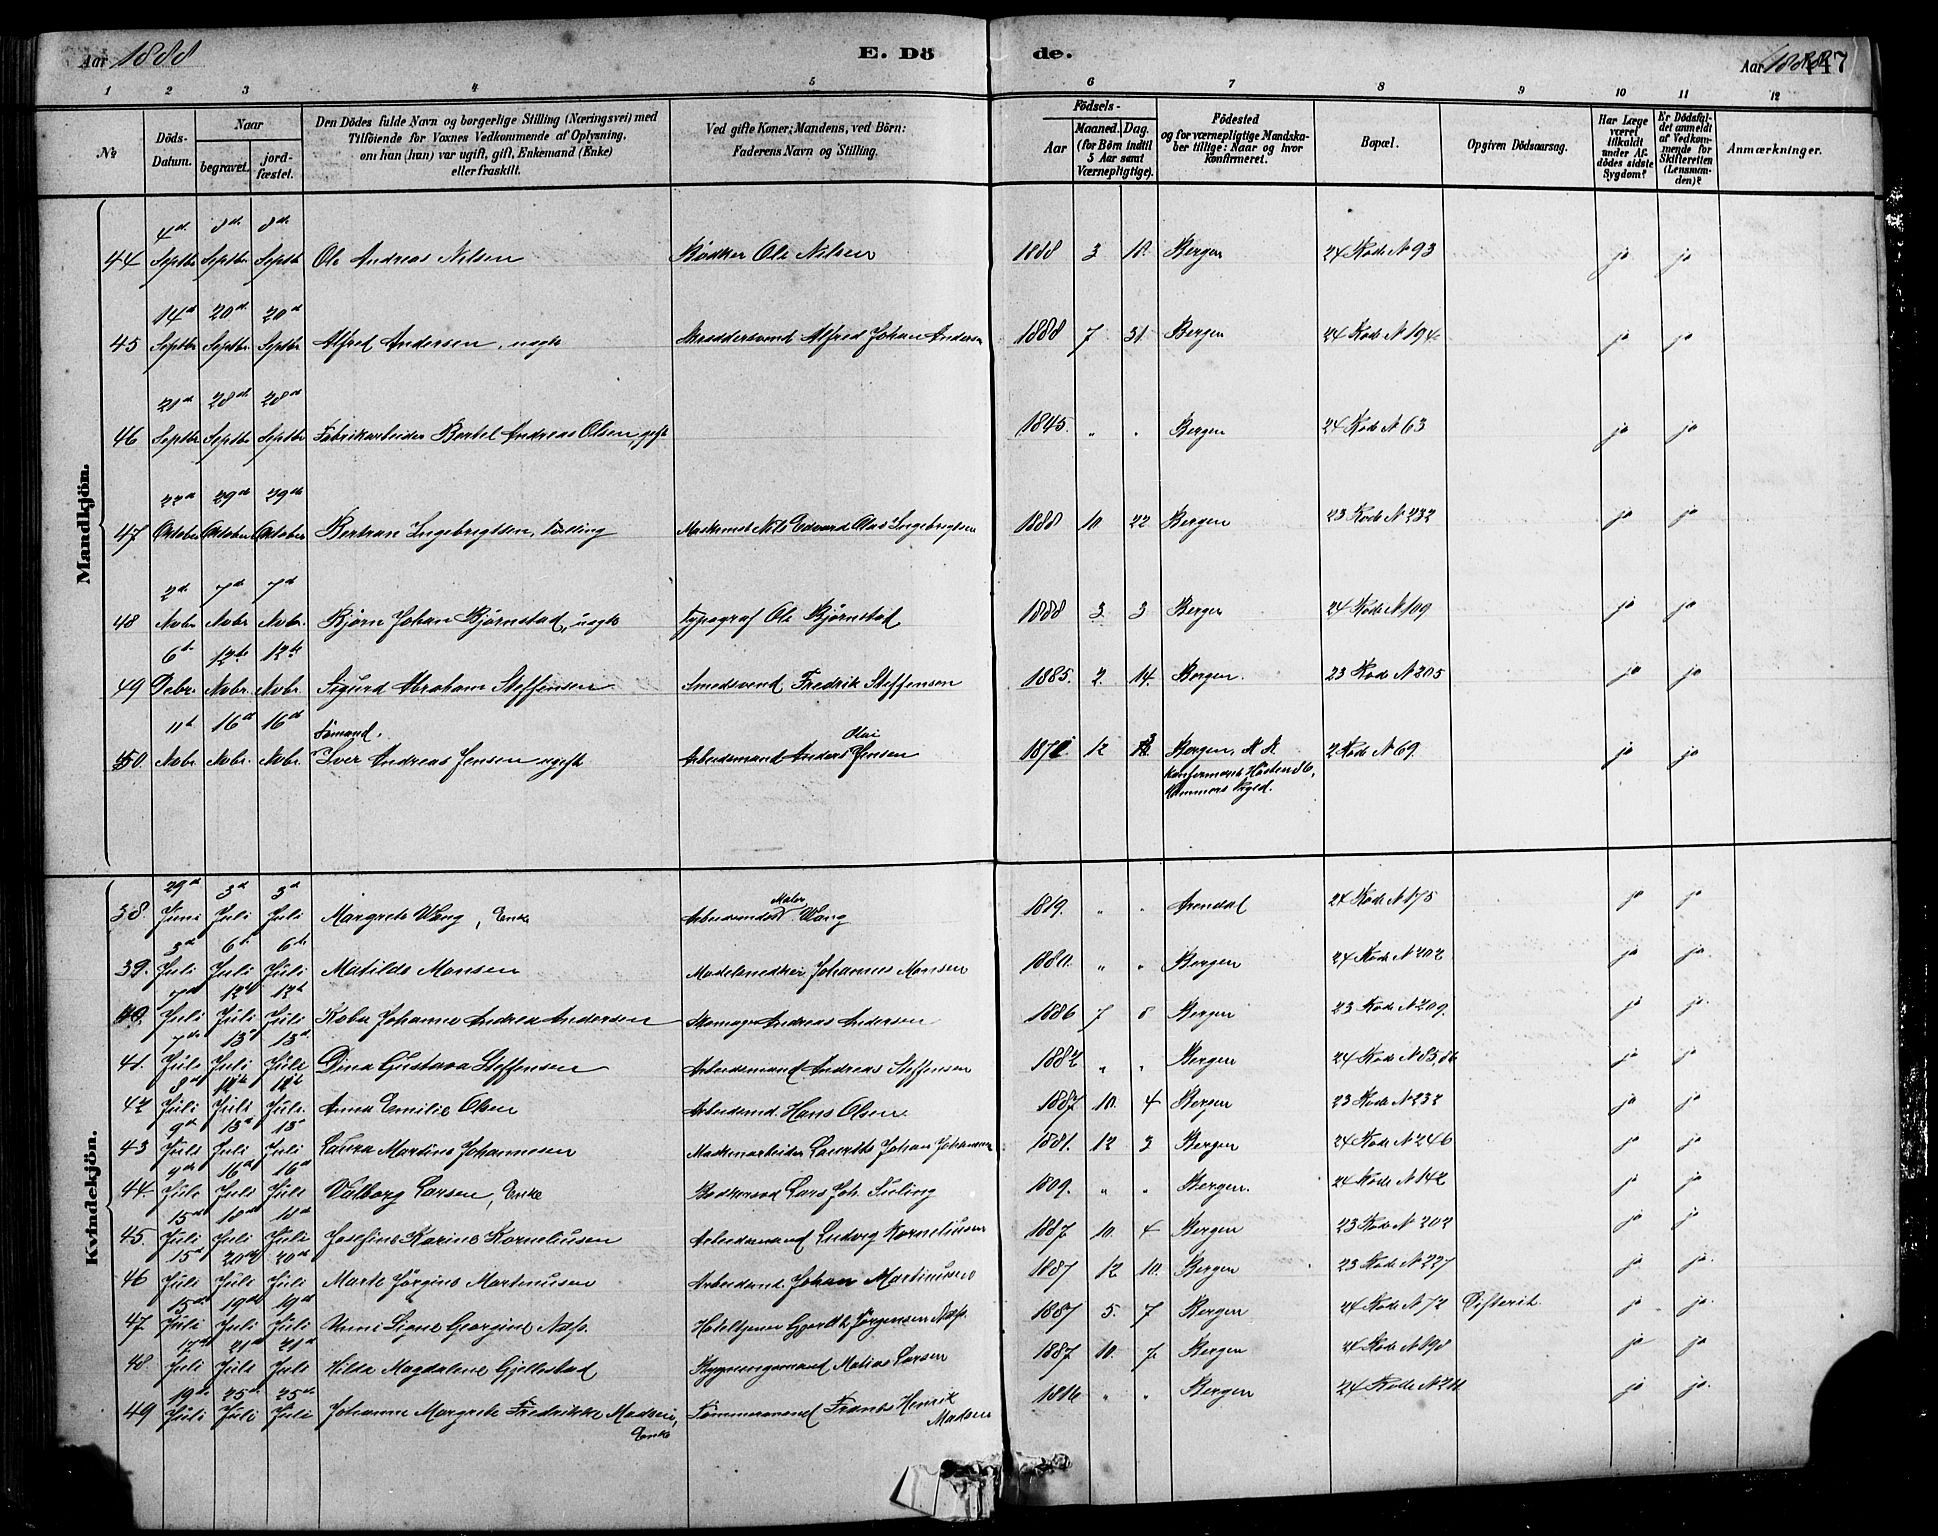 Aar 1888 E. Döde. Aar 1888 147
1 2 3 4 5 6 7 8 9 10 11 12
№ Döds-Datum. Naar begravet. jordfæstet. Den Dödes fulde Navn og borgerlige Stilling (Næringsvei) med Tilföiende for Voxnes Vedkommende af Oplysning, om han (hun) var ugift, gift, Enkemand (Enke) eller fraskilt. Ved gifte Koner: Mandens, ved Börn: Faderens Navn og Stilling. Födsels- Aar Maaned. Dag. (for Börn indtil 5 Aar samt Værnepligtige). Födested og for værnepligtige Mandskaber tillige: Naar og hvor konfirmeret. Bopæl. Opgiven Dödsaarsag. Har Læge været tilkaldt under Afdödes sidste Sygdom? Er Dödsfaldet anmeldt af Vedkommende for Skifteretten (Lensmanden)? Anmærkninger.
Mandkjön.
44 4de Septbr 8de Septbr 8de Septbr Ole Andreas Nilsen Bödker Ole Nilsen 1888 3 18. Bergen 24 Rode N 93 ja ja
45 14de Septbr 20de Septbr 20de Septbr Alfred Andersen, uægte Skræddersvend Alfred Johan Andersen 1888 7 31. Bergen 24 Rode N 194 ja ja
46 21de Septbr 28de Septbr 28de Septbr Fabrikarbeider Bertel Andreas Olsen, gift 1845. " " Bergen 24 Rode N 63 ja ja
47 22de Oktober 29de Oktober 29de Oktober Bertran Ingebrigtsen, Tvilling Maskinist Nils Edvard Olas Ingebrigtsen 1888 10 22 Bergen 23 Rode N 232 ja ja
48 2de Novbr 7de Novbr 7de Novbr. Björn Johan Björnstad, uægte Typograf Ole Björnstad 1888 3. 3 Bergen 24 Rode N 109 ja ja
49 6te Debr. 12te Nobr. 12te Nobr. Sigurd Abraham Steffensen Smedsvend Fredrik Steffensen 1885. 2. 14. Bergen. 23 Rode N 205 ja ja
50. 11te Nobr. 16de Nobr. 16de Nobr. Sömand. Iver Andreas Jensen ugift Arbeidsmand Anders Olai Jensen 1871 12 Bergen, N. K. Konfirmeret Hösten 86, 2 Rode N 69. ja ja
Kvindekjön.
38. 29de Juni 3de Juli 3de Juli Margrete Wang, Enke Maler Wang 1819. " " Arendal 24 Rode N 175 ja ja
39. 3de Juli 6te Juli 6te Juli Matilde Monsen Modelsnedker Johannes Monsen 1880. " " Bergen 24 Rode N 202 ja ja.
40. 7de Juli 12te Juli 12te Juli Johanne Andrea Andersen Skomager Andreas Andersen 1886 7 8 Bergen 23 Rode N 209. ja ja
41. 7de Juli 13de Juli 13de Juli Dina Gustava Steffensen Arbeidsmand Andreas Steffensen 1882 " " Bergen 24 Rode N 85,86 ja ja
42 8de Juli 12te Juli 12te Juli. Anna Emilie Olsen Arbeidsmd. Hans Olsen 1887 10. 4 Bergen 23 Rode N 232 ja ja
43 9de Juli 13de Juli 13de Juli Laura Martine Johannesen Maskinarbeider Laurits Johan Johannesen 1881. 12 3 Bergen 24 Rode N 246 ja ja
44. 9de Juli 16de Juli 16de Juli Valborg Larsen, Enke Lars Joh. 1809. " " Bergen. 24 Rode N 142 ja ja
45. 15de Juli 18de Juli 18de Juli Josefine Karine Korneliusen Arbeidsmand Ludvig Korneliusen 1887 10. 4 Bergen 23 Rode N 202 ja ja
46 15de Juli 20de Juli 20de Juli Marte Jörgine Martinusen Arbeidsmd. Johan Martinusen 1887 12 10. Bergen 23 Rode N 227 ja ja.
47. 15de Juli 19de Juli 19de Juli Anne Signe Georgine Næss. Hoteltjener Jörgensen Næss. 1887 5. 7 Bergen 24 Rode N 72 Difterit. ja ja.
48. 17de Juli 21de Juli 21de Juli Hilda Magdalene Gjellestad Bygningsmand Matias Larsen 1887 10. 7. Bergen 24 Rode N 198 ja ja.
49 19de Juli 25de Juli 25de Juli Johanne Margrete Fredrikke Madsen, Enke Tömmermand Frants Henrik Madsen 1816 " " Bergen 24 Rode ja ja.